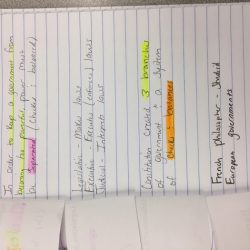 In order to keep a government from
becoming too powerful, power must
be separated (checks & balances)
Legislative - Makes laws
Executive - Executes (enforces) laws
Judicial - Interprets laws
Constitution created 3 branches
of government + a system
of checks & balances
French philosopher - studied
European governments